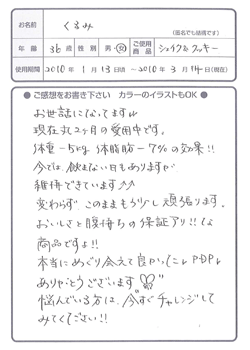 お名前 くるみ
(匿名でも結構です)
年齢 36才 性別 男・女 ご使用商品 シェイク&クッキー
使用期間 2010年1月13日頃~2010年3月14日(現在)
●ご感想をお書き下さい カラーのイラストもOK●
お世話になってます
現在丸2ヶ月の愛用中です。
体重-5kg 体脂肪-7%の効果!!
今では飲まない日もありますが、
維持できています♪♪
変わらず このままもう少し頑張ります。
おいしさと腹持ちの保証アリ!!な
商品ですよ!!
本当にめぐり会えて良かった PDP
ありがとうございます
悩んでいる方は、今すぐチャレンジして
みてください!!